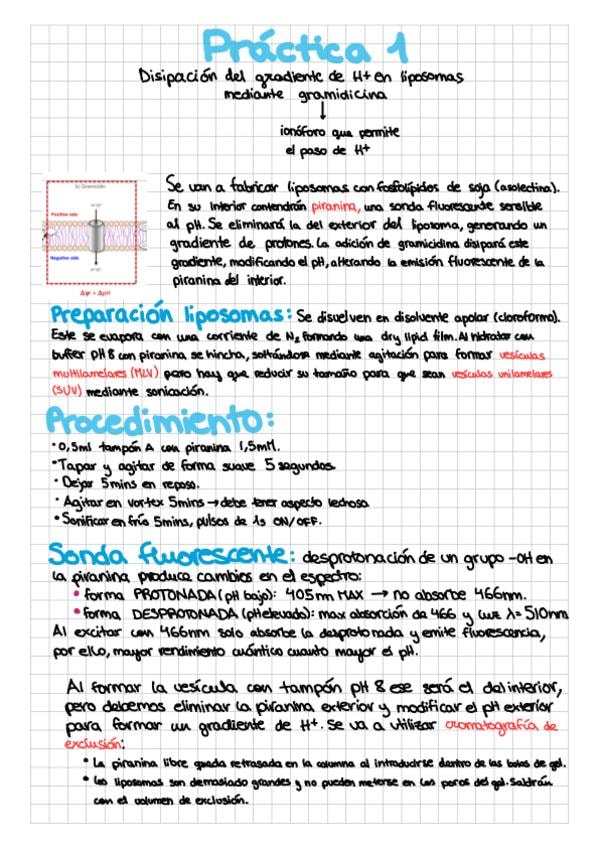 Práctica 1
Disipación del gradiente de H+ en liposomas
mediante gramidicina
↓
ionóforo que permite
el paso de H+
b) Gramicidin
H+/K+
Positive side
Negative side
H+/K+
Δψ + ΔpH
Se van a fabricar liposomas con fosfolípidos de soja (asolectina).
En su interior contendrán piranina, una sonda fluorescente sensible
al pH. Se eliminará la del exterior del liposoma, generando un
gradiente de protones. La adición de gramicidina disipará este
gradiente, modificando el pH, alterando la emisión fluorescente de la
piranina del interior.
Preparación liposomas: Se disuelven en disolvente apolar (cloroformo).
Este se evapora con una corriente de N2 formando una dry lipid film. Al hidratar con
buffer pH 8 con piranina se hincha, soltándose mediante agitación para formar vesículas
multilamelares (MLV) pero hay que reducir su tamaño para que sean vesículas unilamelares
(SUV) mediante sonicación.
Procedimiento:
· 0,5ml tampón A con piranina 1,5mM.
· Tapar y agitar de forma suave 5 segundos
· Dejar 5mins en reposo.
· Agitar en vortex 5mins → debe tener aspecto lechoso
· Sonificar en frío 5mins, pulsos de 1s ON/OFF.
Sonda fluorescente: desprotonación de un grupo -OH en
la piranina produce cambios en el espectro:
• forma PROTONADA (pH bajo): 405nm MAX → no absorbe 466nm.
• forma DESPROTONADA (pH elevado): max absorción de 466 y luz λ= 510nm
Al excitar con 466nm solo absorbe la desprotonada y emite fluorescencia,
por ello, mayor rendimiento cuántico cuanto mayor el pH.
Al formar la vesícula con tampón pH 8 ese será el del interior,
pero debemos eliminar la piranina exterior y modificar el pH exterior
para formar un gradiente de H+. Se va a utilizar cromatografía de
exclusión:
• La piranina libre queda retrasada en la columna al introducirse dentro de las bolas de gel.
• Los liposomas son demasiado grandes y no pueden meterse en los poros del gel. Saldrán
con el volumen de exclusión.